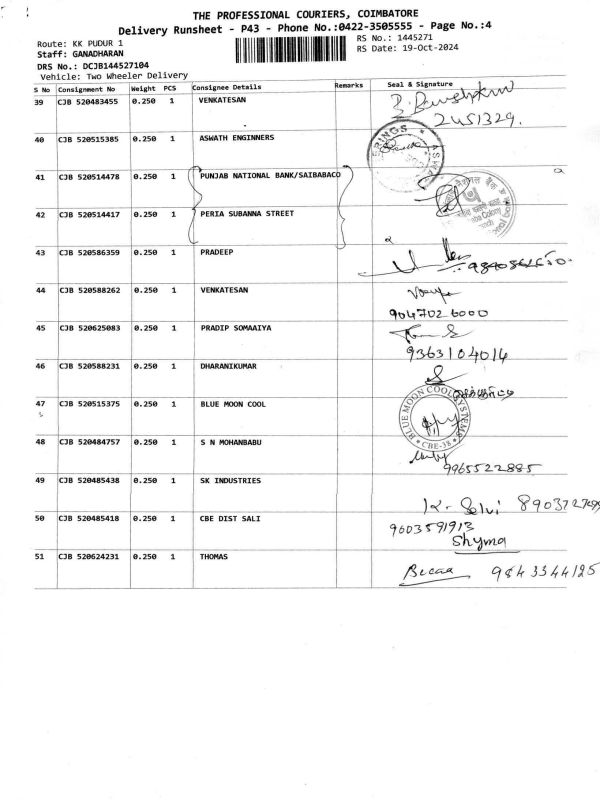 THE PROFESSIONAL COURIERS, COIMBATORE
Delivery Runsheet - P43 - Phone No.:0422-3505555 - Page No.:4
Route: KK PUDUR 1
RS No.: 1445271
Staff: GANADHARAN
RS Date: 19-Oct-2024
DRS No.: DCJB144527104
Vehicle: Two Wheeler Delivery
S No Consignment No Weight PCS Consignee Details Remarks Seal & Signature
39 CJB 520483455 0.250 1 VENKATESAN
40 CJB 520515385 0.250 1 ASWATH ENGINNERS
41 CJB 520514478 0.250 1 PUNJAB NATIONAL BANK/SAIBABACO
42 CJB 520514417 0.250 1 PERIA SUBANNA STREET
43 CJB 520586359 0.250 1 PRADEEP
44 CJB 520588262 0.250 1 VENKATESAN
9047026000
45 CJB 520625083 0.250 1 PRADIP SOMAAIYA
9363104014
46 CJB 520588231 0.250 1 DHARANIKUMAR
47 CJB 520515375 0.250 1 BLUE MOON COOL
BLUE MOON COOL SYSTEMS
CBE-38
48 CJB 520484757 0.250 1 S N MOHANBABU
9965522885
49 CJB 520485438 0.250 1 SK INDUSTRIES
K. Selvi
50 CJB 520485418 0.250 1 CBE DIST SALI
9603591913
Shyma
51 CJB 520624231 0.250 1 THOMAS
9843344125